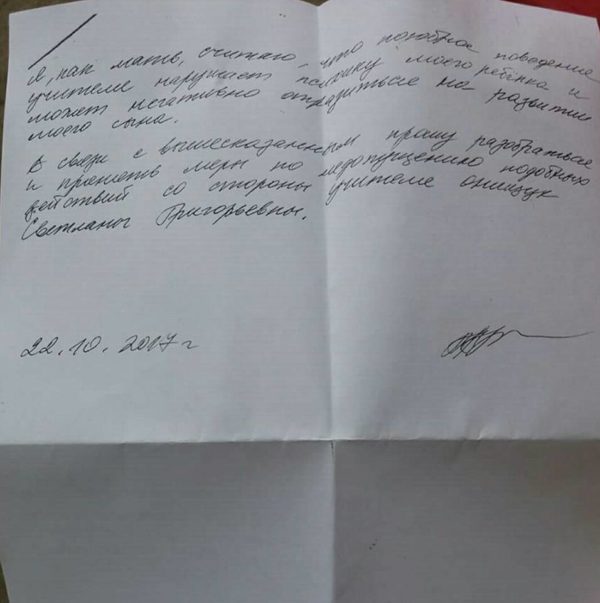 Я, как мать, считаю, что подобное поведение
учителя нарушает психику моего ребёнка и
может негативно отразиться на развитии
моего сына.
В связи с вышесказанным прошу разобраться
и принять меры по недопущению подобных
действий со стороны учителя Онищук
Светланы Григорьевны.
22.10.2017 г